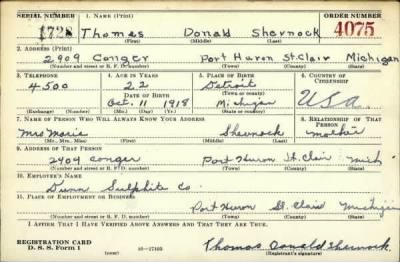 SERIAL NUMBER 1. NAME (Print) ORDER NUMBER
1728 Thomas Donald Shevnock 4075
(First) (Middle) (Last)
2. ADDRESS (Print)
2909 Conger Port Huron St. Clair Michigan
(Number and street or R. F. D. number) (Town) (County) (State)
3. TELEPHONE 4. AGE IN YEARS 5. PLACE OF BIRTH 6. COUNTRY OF CITIZENSHIP
4500 22 Detroit
DATE OF BIRTH (Town or county)
Oct. 11 1918 Michigan U.S.a.
(Exchange) (Number) (Mo.) (Day) (Yr.) (State or country)
7. NAME OF PERSON WHO WILL ALWAYS KNOW YOUR ADDRESS 8. RELATIONSHIP OF THAT PERSON
Mrs Marie Shevnock mother
(Mr., Mrs., Miss) (First) (Middle) (Last)
9. ADDRESS OF THAT PERSON
2909 Conger Port Huron St. Clair Mich
(Number and street or R. F. D. number) (Town) (County) (State)
10. EMPLOYER'S NAME
Dunn Sulphite Co.
11. PLACE OF EMPLOYMENT OR BUSINESS
Port Huron St. Clair Michigan
(Number and street or R. F. D. number) (Town) (County) (State)
I AFFIRM THAT I HAVE VERIFIED ABOVE ANSWERS AND THAT THEY ARE TRUE.
REGISTRATION CARD
D. S. S. Form 1 (over) 16—17105 Thomas Donald Shevnock
(Registrant's signature)